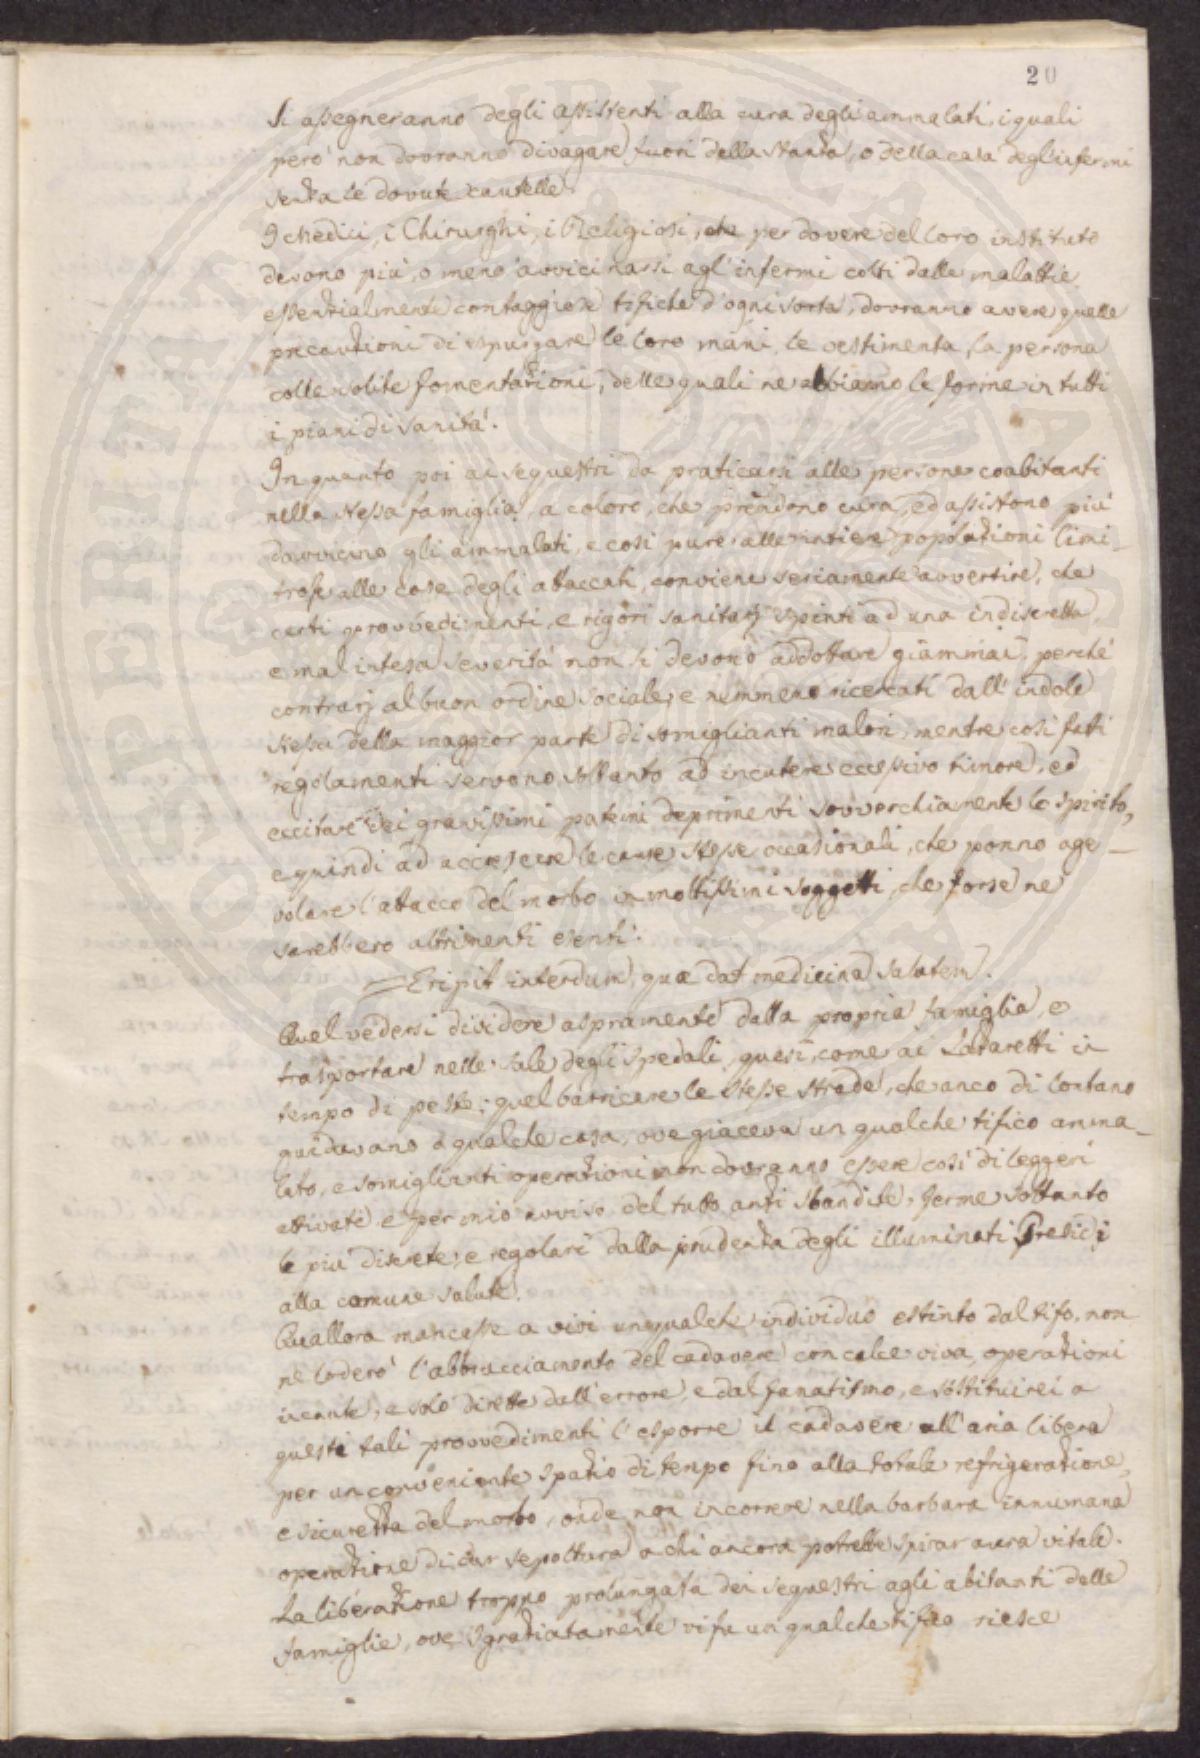 20
Si assegneranno degli assistenti alla cura degli ammalati, i quali
però non dovranno divagare fuori della stanza, o della casa degl'infermi
senza le dovute cautelle.
I Medici, i Chirurghi, i Religiosi, che per dovere del loro instituto
devono più, o meno avvicinarsi agl'infermi colti dalle malattie
essenzialmente contaggiose tifiche d'ogni sorta, dovranno avere quelle
precauzioni di espurgare le loro mani, le vestimenta, la persona
colle solite fomentazioni, delle quali ne abbiamo le forme in tutti
i piani di sanità.
In quanto poi ai sequestri da praticarsi alle persone coabitanti
nella stessa famiglia, a coloro, che prendono cura, ed assistono più
davvicino gli ammalati, e così pure alle intiere popolazioni limi_
trofe alle case degli attaccati, conviene seriamente avvertire, che
certi provvedimenti, e rigori sanitarj spinti ad una indiscretta,
e mal intesa severità non si devono addottare giammai, perché
contrarj al buon ordine sociale, e nemmeno ricercati dall'indole
stessa della maggior parte di somiglianti malori, mentre così fatti
regolamenti servono soltanto ad incutere eccessivo timore, ed
eccitare dei gravissimi patemi deprimenti sovverchiamente lo spirito,
e quindi ad accrescere le cause stesse occasionali, che ponno age_
volare l'attacco del morbo in moltissimi soggetti, che forse ne
sarebbero altrimenti esenti.
= Eripit interdum, quæ dat medicina salutem.
Quel vedersi dividere aspramente dalla propria famiglia, e
trasportare nelle sale degli Spedali, quasi come ai Lazaretti in
tempo di peste; quel barricare le stesse strade, che anco di lontano
guidavano a qualche casa, ove giaceva un qualche tifico amma_
lato, e somiglianti operazioni non dovranno essere così di leggeri
attivate, e per mio avviso del tutto anzi sbandite, ferme soltanto
le più discrete, e regolari dalla prudenza degli illuminati Presidi
alla comune salute.
Quallora mancasse a vivi un qualche individuo estinto dal tifo, non
ne loderò l'abbracciamento del cadavere con calce viva, operazioni
incaute, e solo dirette dall'errore, e dal fanatismo, e sostituirei a
questi tali provvedimenti l'esporre il cadavere all'aria libera
per un conveniente spazio di tempo fino alla totale refrigerazione,
e sicurezza del morbo, onde non incorrere nella barbara innumana
operazione di dar sepoltura a chi ancora potrebbe spirar aura vitale.
La liberazione troppo prolungata dei sequestri agli abitanti delle
famiglie, ove sgraziatamente vi fu un qualche tifico riesce